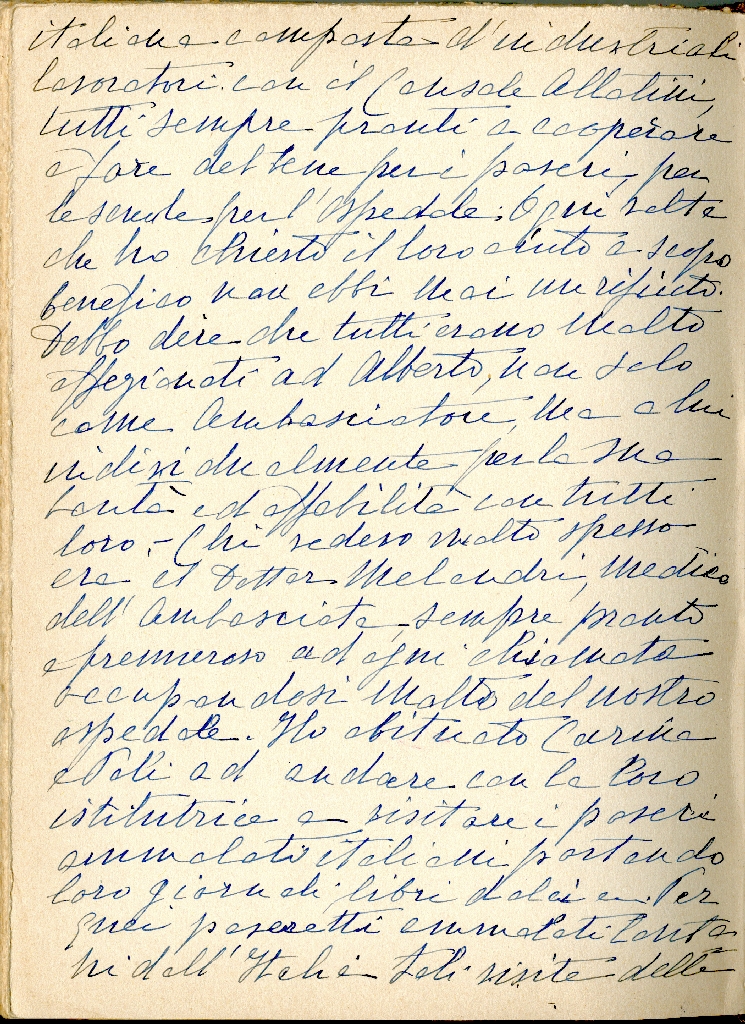 italiana composta d'industriali
lavoratori con il Console Allatini,
tutti sempre pronti a cooperare
e fare del bene per i poveri, per
le scuole, per l'Ospedale; Ogni volta
che ho chiesto il loro aiuto a scopo
benefico non ebbi mai un rifiuto.
Debbo dire che tutti erano molto
affezionati ad Alberto, non solo
come Ambasciatore, ma a lui
individualmente per la sua
bontà ed affabilità con tutti
loro. - Chi vedevo molto spesso
era il Dottor Melandri, medico
dell'Ambasciata, sempre pronto
e premuroso ad ogni chiamata
occupandosi molto del nostro
ospedale. Ho abituato Carina
e ad andare con la loro
istitutrice a visitare i poveri
ammalati italiani portando
loro giornali libri dolci Per
quei poveretti ammalati lonta
ni dall'Italia tali visite delle